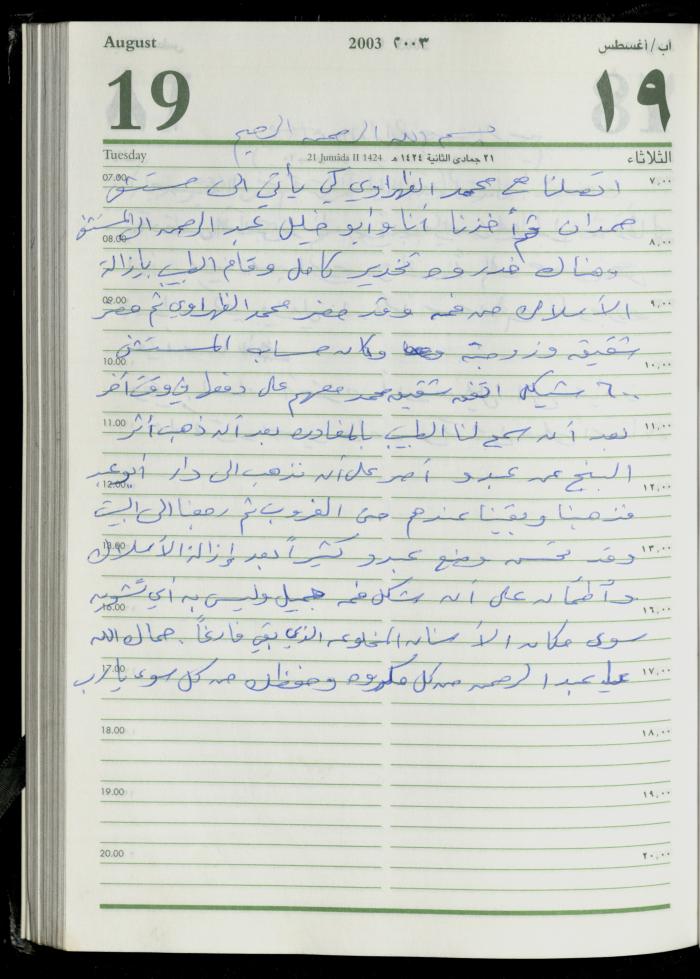 August 2003 ٢٠٠٣ آب/أغسطس
19 ١٩
بسم الله الرحمن الرحيم
Tuesday 21 Jumâda II 1424 ٢١ جمادى الثانية ١٤٢٤ هـ الثلاثاء
07.00 ٧,٠٠
اتصلنا مع محمد الظهراوي كي يأتي الى مستشفى
حمدان ثم أخذنا أنا وأبو خليل عبد الرحمن الى المستشفى
08.00 ٨,٠٠
وهناك خدروه تخدير كامل وقام الطبيب بإزالة
09.00 ٩,٠٠
الأسلاك من فمه وقد حضر محمد الظهراوي ثم حضر
شقيقه وزوجته وكان حساب المستشفى
10.00 ١٠,٠٠
٦٠٠ شيكل اتفق شقيق محمد معهم على دفعها في وقت آخر
11.00 ١١,٠٠
بعد أن سمح لنا الطبيب بالمغادرة بعد أن ذهب أثر
البنج عن عبدو أصر على أن نذهب الى دار أبو عبد
12.00 ١٢,٠٠
فذهبنا وبقينا عندهم حتى الغروب ثم رجعنا الى البيت
13.00 ١٣,٠٠
وقد تحسن وضع عبدو كثيراً بعد إزالة الأسلاك
وأطمأن على أن شكل فمه جميل وليس به أي تشويه
16.00 ١٦,٠٠
سوى مكان الأسنان المخلوعة الذي بقي فارغاً. حماك الله
17.00 ١٧,٠٠
يا عبد الرحمن من كل مكروه وحفظك من كل سوء يا رب
18.00 ١٨,٠٠
19.00 ١٩,٠٠
20.00 ٢٠,٠٠